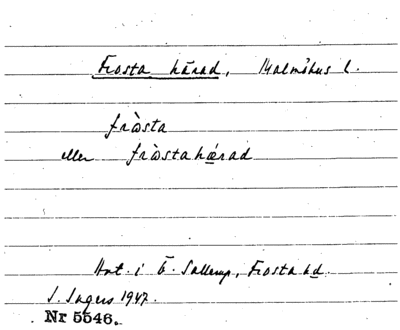 Frosta härad, Malmöhus l.
fròsta
eller fròstahærad
Ant. i Ö. Sallerup, Frosta hd.
S. Ingers 1947.
Nr 5546.